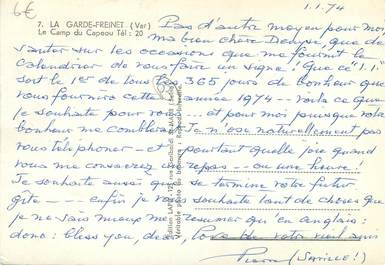 6€
1.1.74
7. LA GARDE-FREINET (Var)
Le Camp du Capeou Tél : 20
Pas d'autre moyen pour moi,
ma bien chère Denyse, que de
sauter sur les occasions que me fournit le
calendrier de vous faire un signe! Que ce "1.1."
soit le 1er de tous les 365 jours de bonheur que
vous fournira cette année 1974 -- voilà ce que
je souhaite pour vous -- et pour moi puisque votre
bonheur me comblera. Je n'ose naturellement pas
vous téléphoner - et pourtant quelle joie quand
vous me consacrez un repas -- ou une heure!
Je souhaite aussi que se termine votre futur
gîte --- enfin je vous souhaite tant de choses que
je ne sais mieux me résumer qu'en anglais:
donc: bless you, dear, Love de votre vieil ami
Pierre (Saville!)